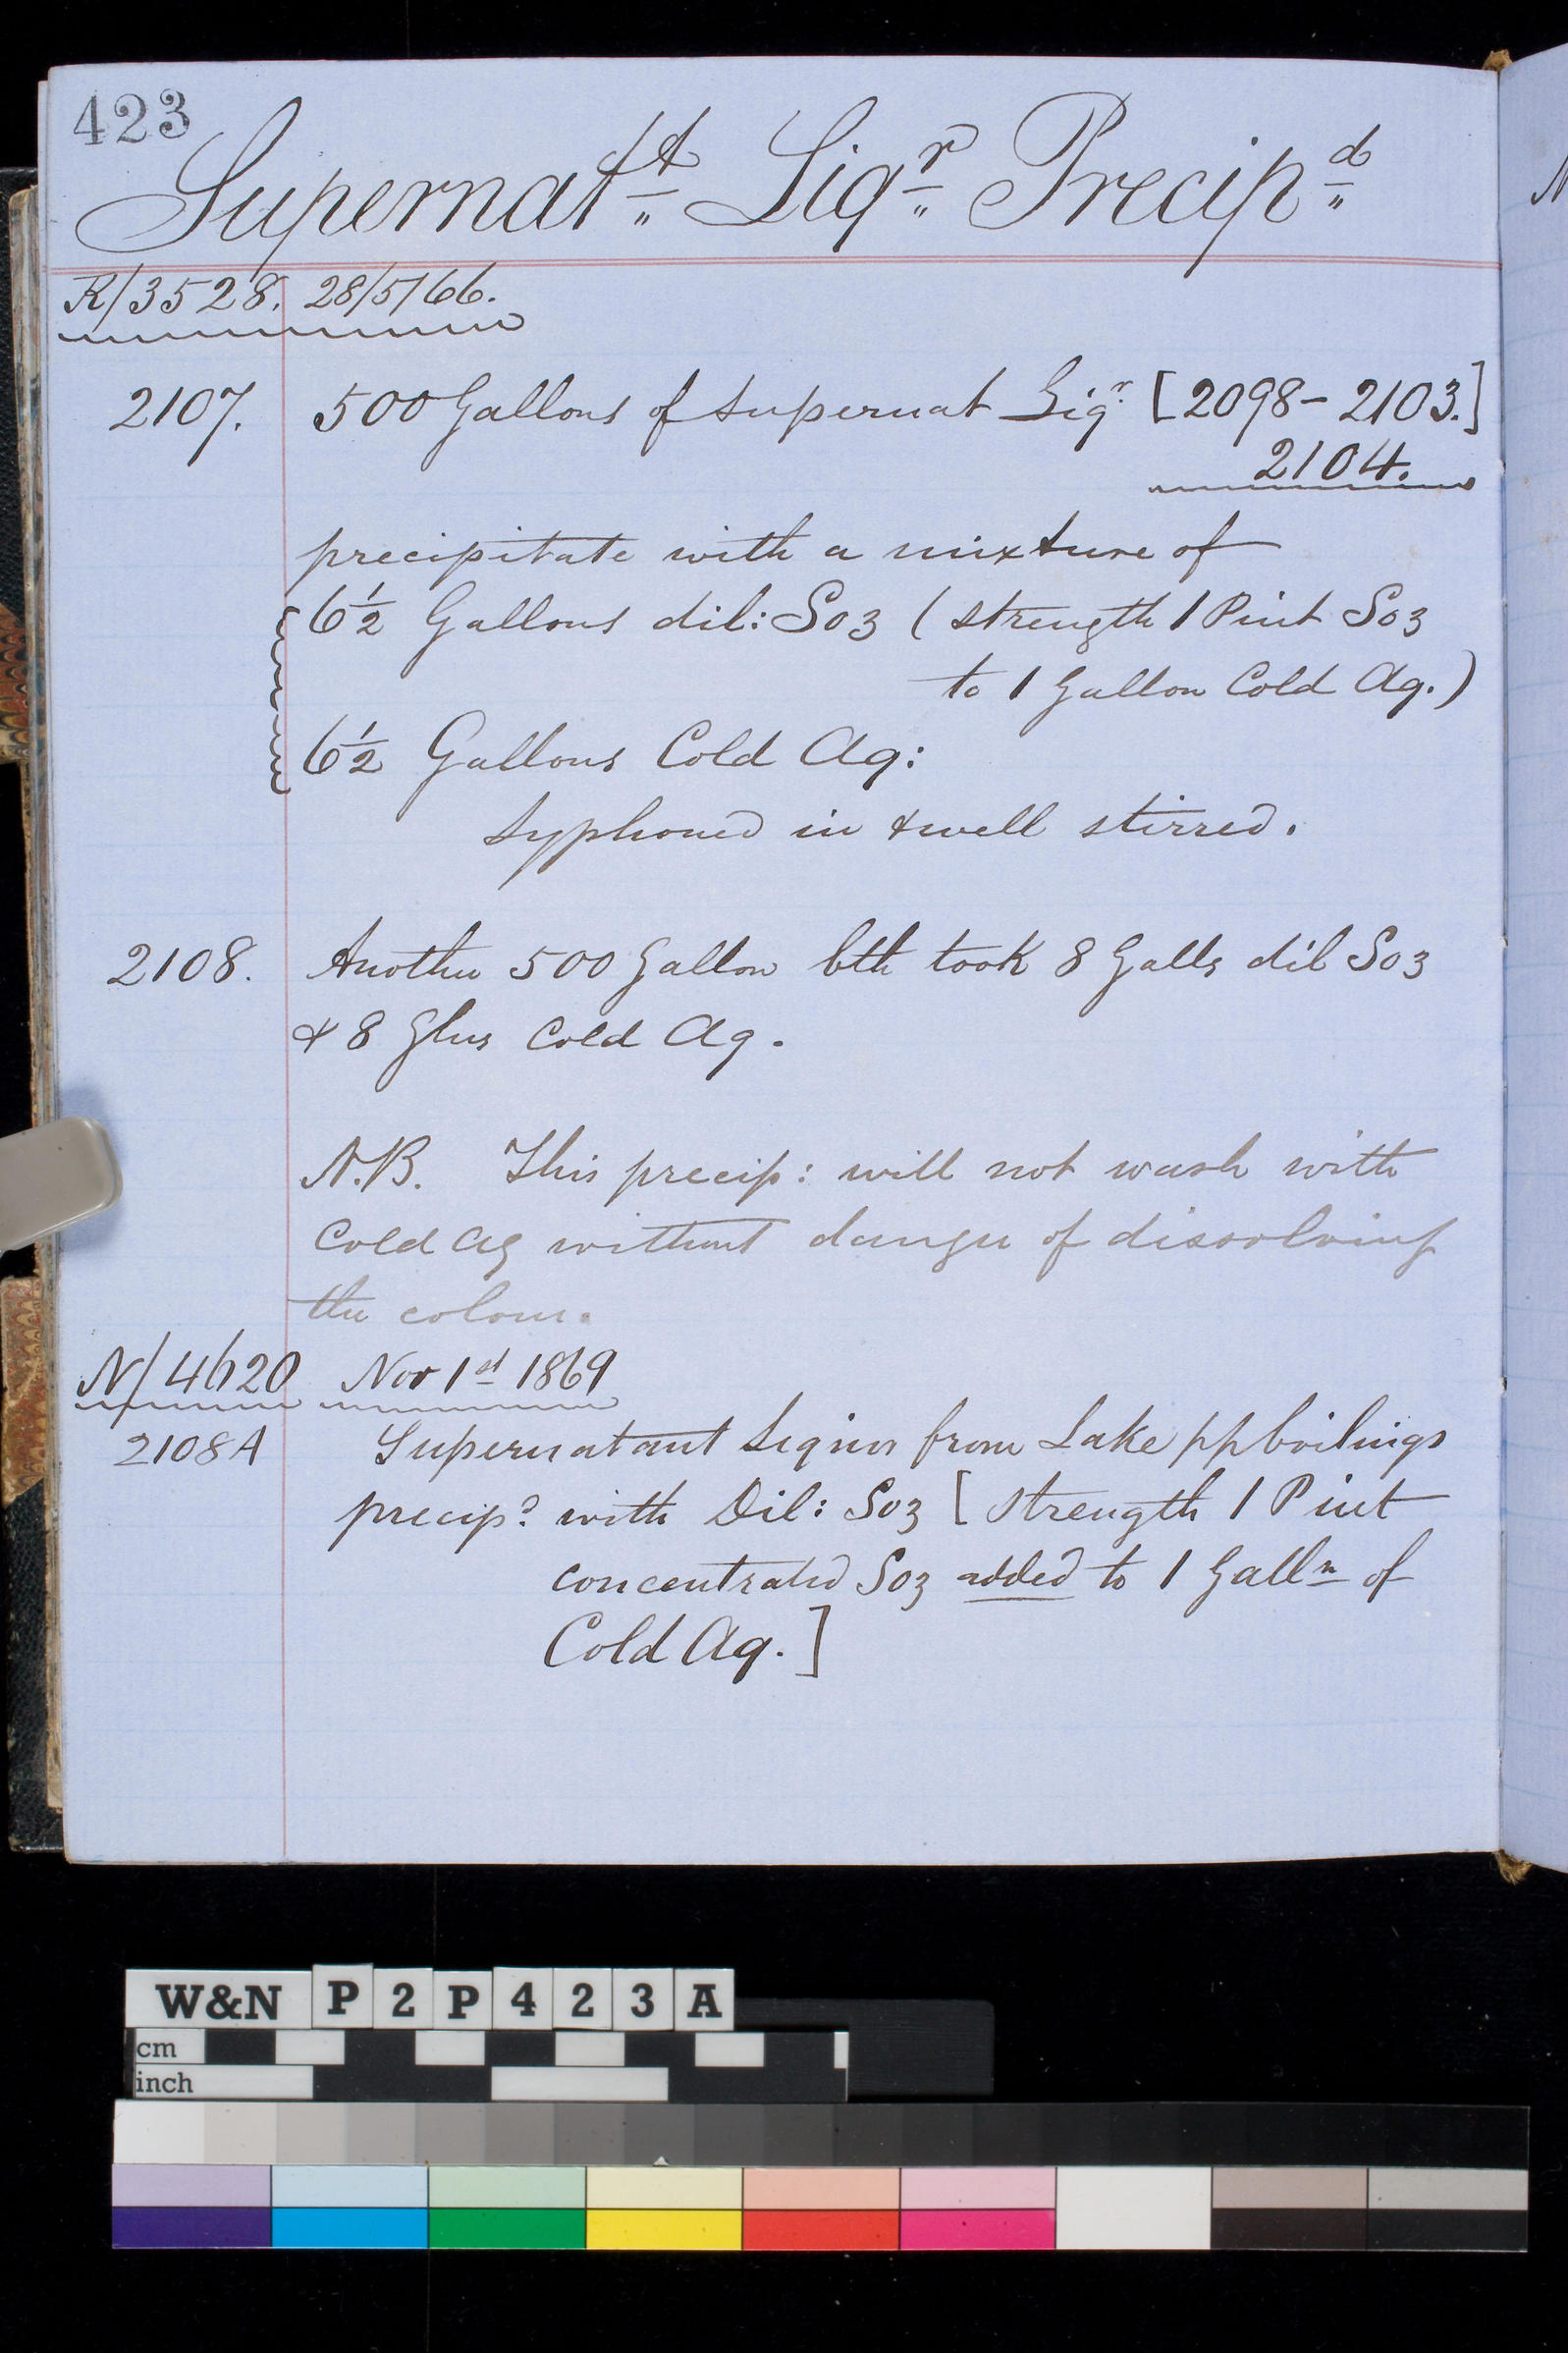 423
Supernatt Liqr Precipd
R/3528. 28/5/66.
2107. 500 Gallons of supernat Liqr [2098 - 2103.]
2104.
precipitate with a mixture of
6½ Gallons dil: So3 (strength 1 Pint So3
to 1 Gallon Cold Aq.)
6½ Gallons Cold Aq:
syphoned in & well stirred.
2108. Another 500 Gallon btl took 8 Galls dil So3
& 8 Glns Cold Aq.
N.B. This precip: will not wash with
Cold Aq without danger of dissolving
the colour.
N/4620 Nov 1st 1869
2108A Supernatant Liquor from Lake pp boilings
precipd with Dil: So3 [strength 1 Pint
concentrated So3 added to 1 Galln of
Cold Aq.]
W&N P2P423A
cm
inch